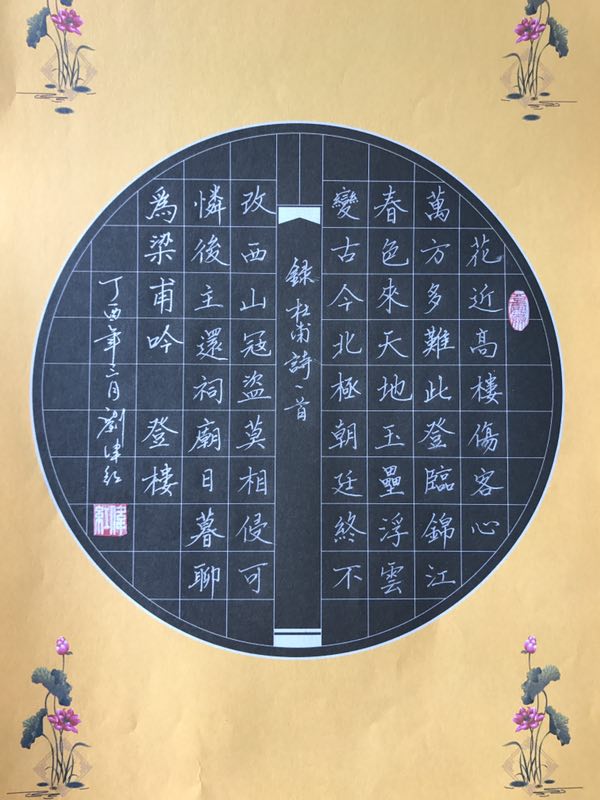 花近高樓傷客心
萬方多難此登臨錦江
春色來天地玉壘浮雲
變古今北極朝廷終不
録杜甫詩一首
改西山冠盜莫相侵可
憐後主還祠廟日暮聊
爲梁甫吟 登樓
丁酉年三月 劉